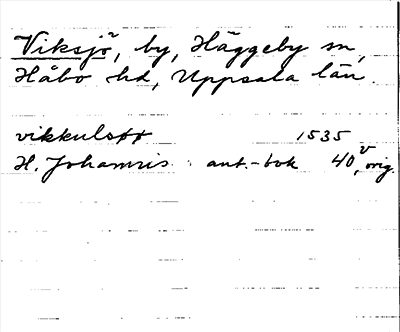 Viksjö, by, Häggeby sn,
Håbo hd, Uppsala län.
vikkulstt 1535
H. Johannis ant.-bok 40v, orig.